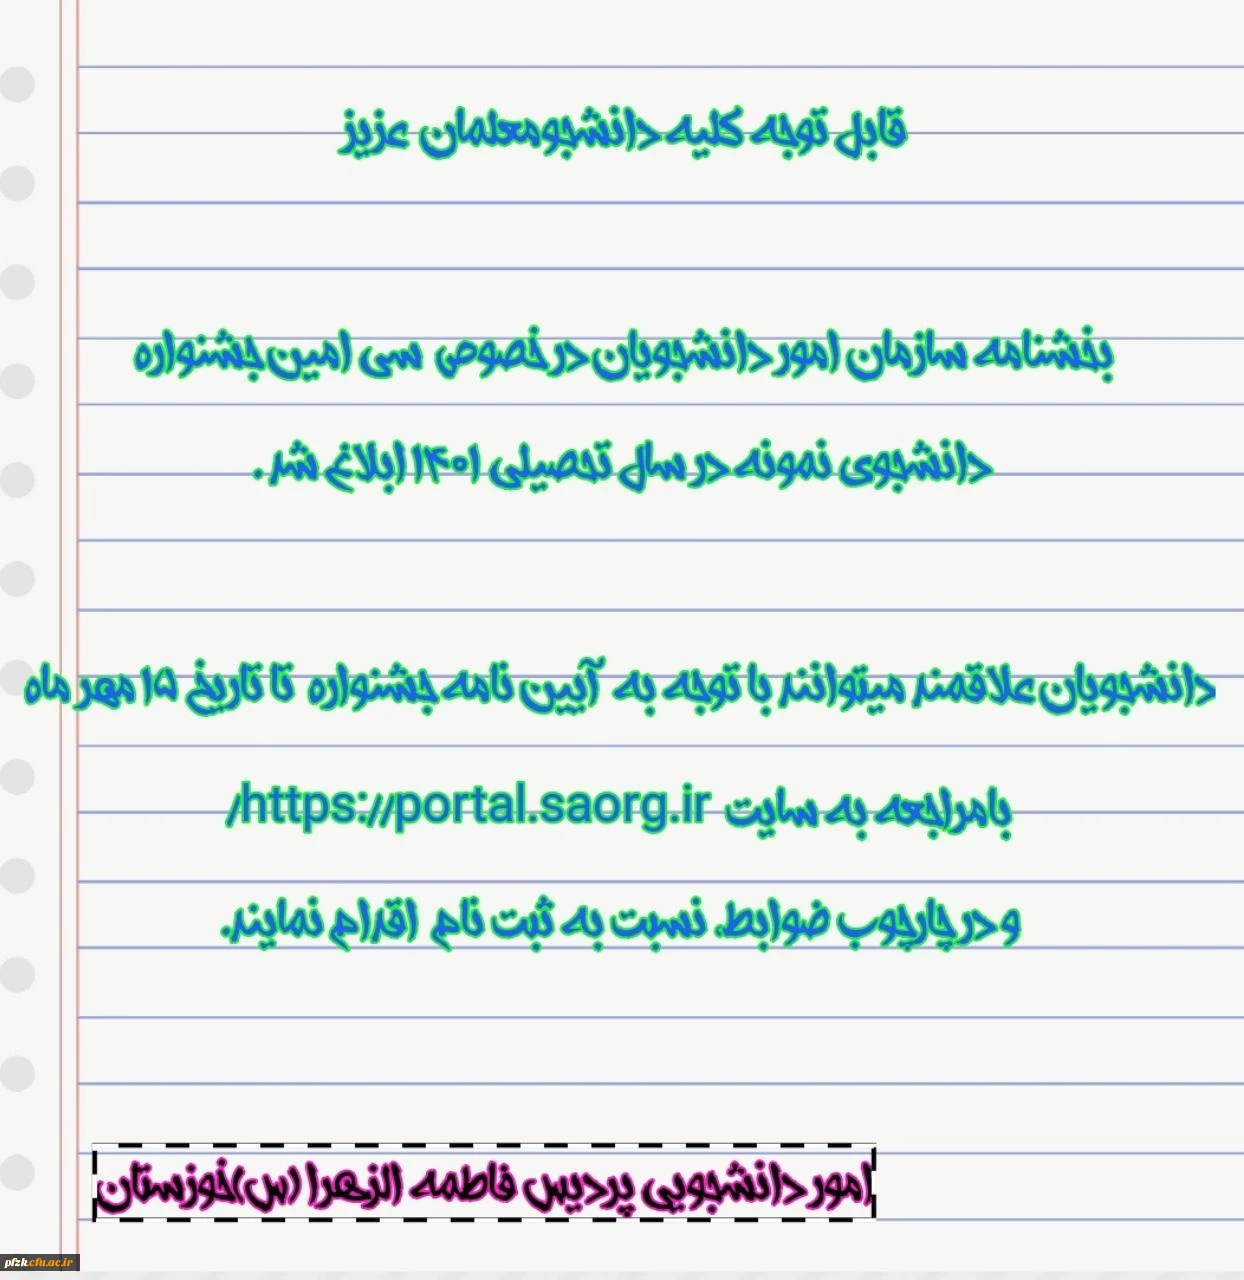 قابل توجه کلیه دانشجومعلمان عزیز
بخشنامه سازمان امور دانشجویان درخصوص سی امین جشنواره
دانشجوی نمونه در سال تحصیلی ۱۴۰۱ ابلاغ شد .
دانشجویان علاقمند میتوانند با توجه به آیین نامه جشنواره تا تاریخ ۱۵ مهر ماه
بامراجعه به سایت https://portal.saorg.ir/
و درچارچوب ضوابط، نسبت به ثبت نام اقدام نمایند.
امور دانشجویی پردیس فاطمه الزهرا (س)خوزستان
pfzk.cfu.ac.ir